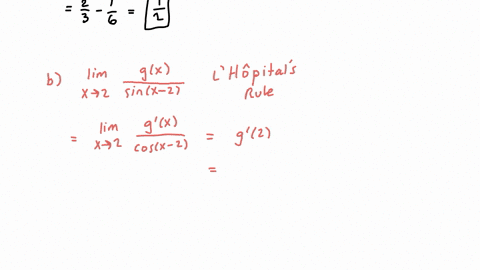 = 2/3 - 1/6 = 1/2
b) lim x→2 g(x)/sin(x-2) L'Hôpital's Rule
= lim x→2 g'(x)/cos(x-2) = g'(2)
=